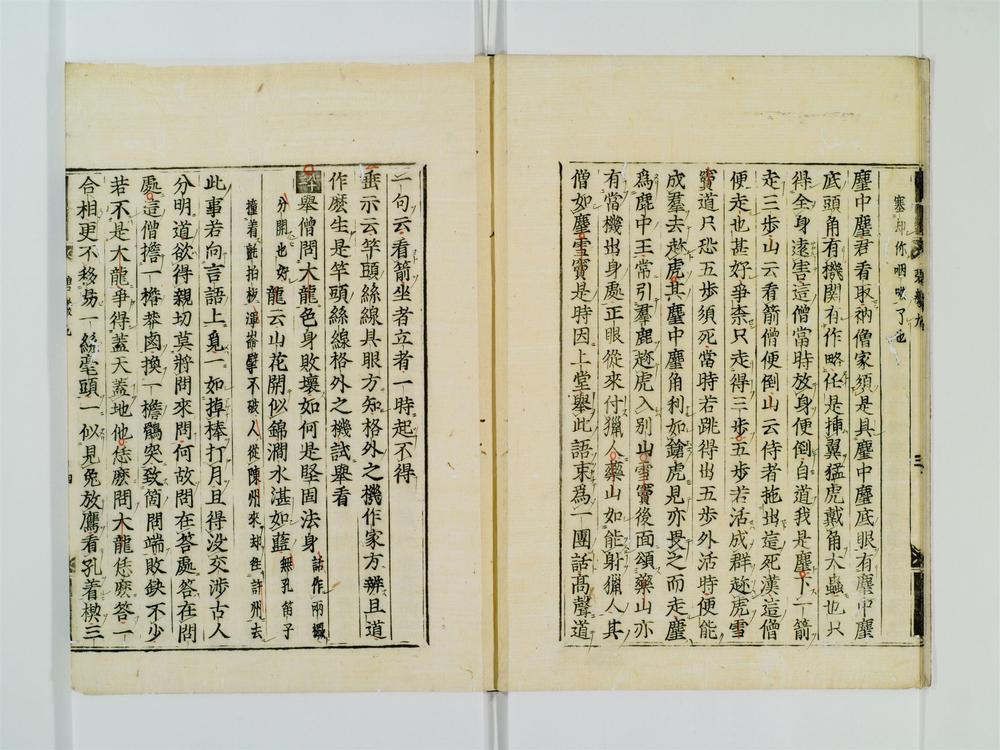 塞却你咽喉了也
麈中麈君看取衲僧家須是具麈中麈底眼有麈中麈
底頭角有機關有作略任是揷翼猛虎戴角大蟲也只
得全身遠害這僧當時放身便倒自道我是麈下一箭
走三歩山云看箭僧便倒山云侍者拖出這死漢這僧
便走也甚好爭柰只走得三歩五歩若活成群趂虎雪
竇道只恐五歩須死當時若跳得出五歩外活時便能
成羣去趂虎其麈中麈角利如鎗虎見亦畏之而走麈
爲鹿中王常引羣鹿趂虎入別山雪竇後面頌藥山亦
有當機出身處正眼從來付獵人藥山如能射獵人其
僧如麈雪竇是時因上堂舉此語束爲一團話高聲道
一句云看箭坐者立者一時起不得
垂示云竿頭絲線具眼方知格外之機作家方辨且道
作麽生是竿頭絲線格外之機試舉看
舉僧問大龍色身敗壞如何是堅固法身 話作兩橛
分開也好 龍云山花開似錦澗水湛如藍 無孔笛子
撞着氈拍板渾崙擘不破人從陳州來却徃許州去
此事若向言語上覓一如掉棒打月且得没交渉古人
分明道欲得親切莫將問來問何故問在答處答在問
處這僧擔一檐莽鹵換一檐鶻突致箇問端敗缺不少
若不是大龍爭得蓋天蓋地他恁麽問大龍恁麽答一
合相更不移易一絲毫頭一似見兔放鷹看孔着楔三